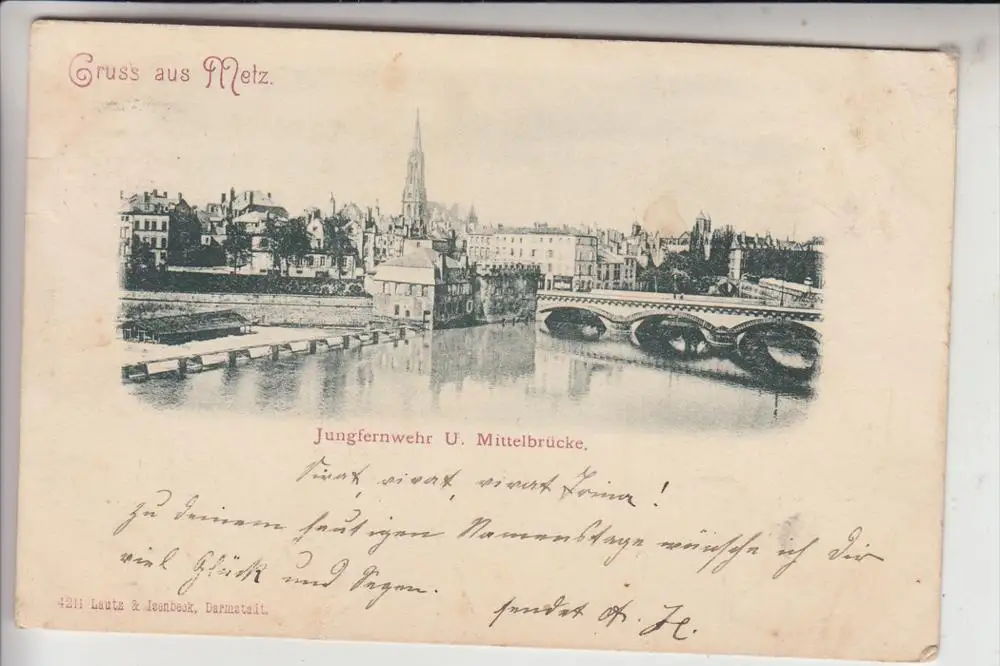 Gruss aus Metz.
Jungfernwehr U. Mittelbrücke.
Vivat, vivat, vivat Irina!
Zu deinem heutigen Namenstage wünsche ich Dir
viel Glück und Segen.
sendet A. H.
4211 Lautz & Isenbeck, Darmstadt.